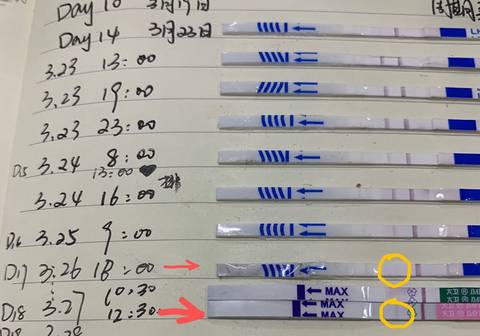 Day 10 3月19日
Day 14 3月23日
3.23 13:00
3.23 19:00
3.23 23:00
D15 3.24 8:00
13:00 ♥ 排
3.24 16:00
D16 3.25 9:00
D17 3.26 18:00
10:30
← MAX
D18 3.27 12:30
← MAX
← MAX